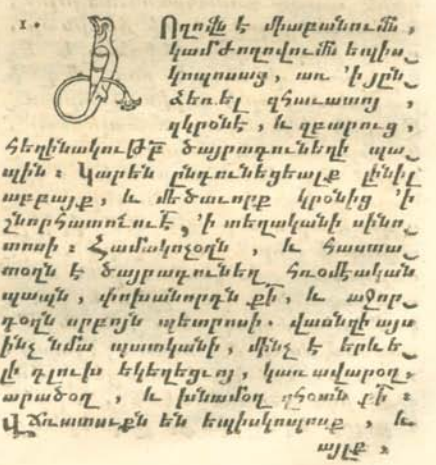 1.
Ողովն է միաբանումն,
կամ ժողովումն եպիս_
կոպոսաց, առ 'ի յըն_
ձեռել զհաւատոյ,
զկրօնէ, և զբարուց,
հեղինակութբ ծայրագունեղի պա_
պին : Կարեն ընդունեցեալք լինիլ
աբբայք, և մեծաւորք կրօնից 'ի
շնորհատուէ, 'ի տեղականի սինո_
տոսի : Համակոչօղն, և հաստա_
տօղն է ծայրագունեղ հռօմէական
պապն, փոխանորդն քի, և աջոր_
դօղն սրբոյն պետրոսի. վասնզի այս
ինչ նմա պատկանի, մինչ է երևե_
լի գլուխ եկեղեցւոյ, կառավարօղ,
արածօղ, և խնամօղ զհօտն քի :
Վճռատուքն են եպիսկոպոսք, և
այլք,